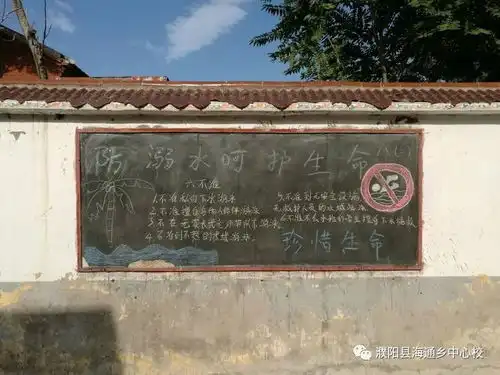 防溺水呵护生命
六不准
1.不准私自下水游泳
2.不准擅自与他人结伴游泳
3.不准在无家长或老师带队下游泳
4.不准到不熟悉的水域游泳
5.不准到无安全设施
无救护人员的水域游泳
6.不准不会水性的学生擅自下水施救
珍惜生命
濮阳县海通乡中心校